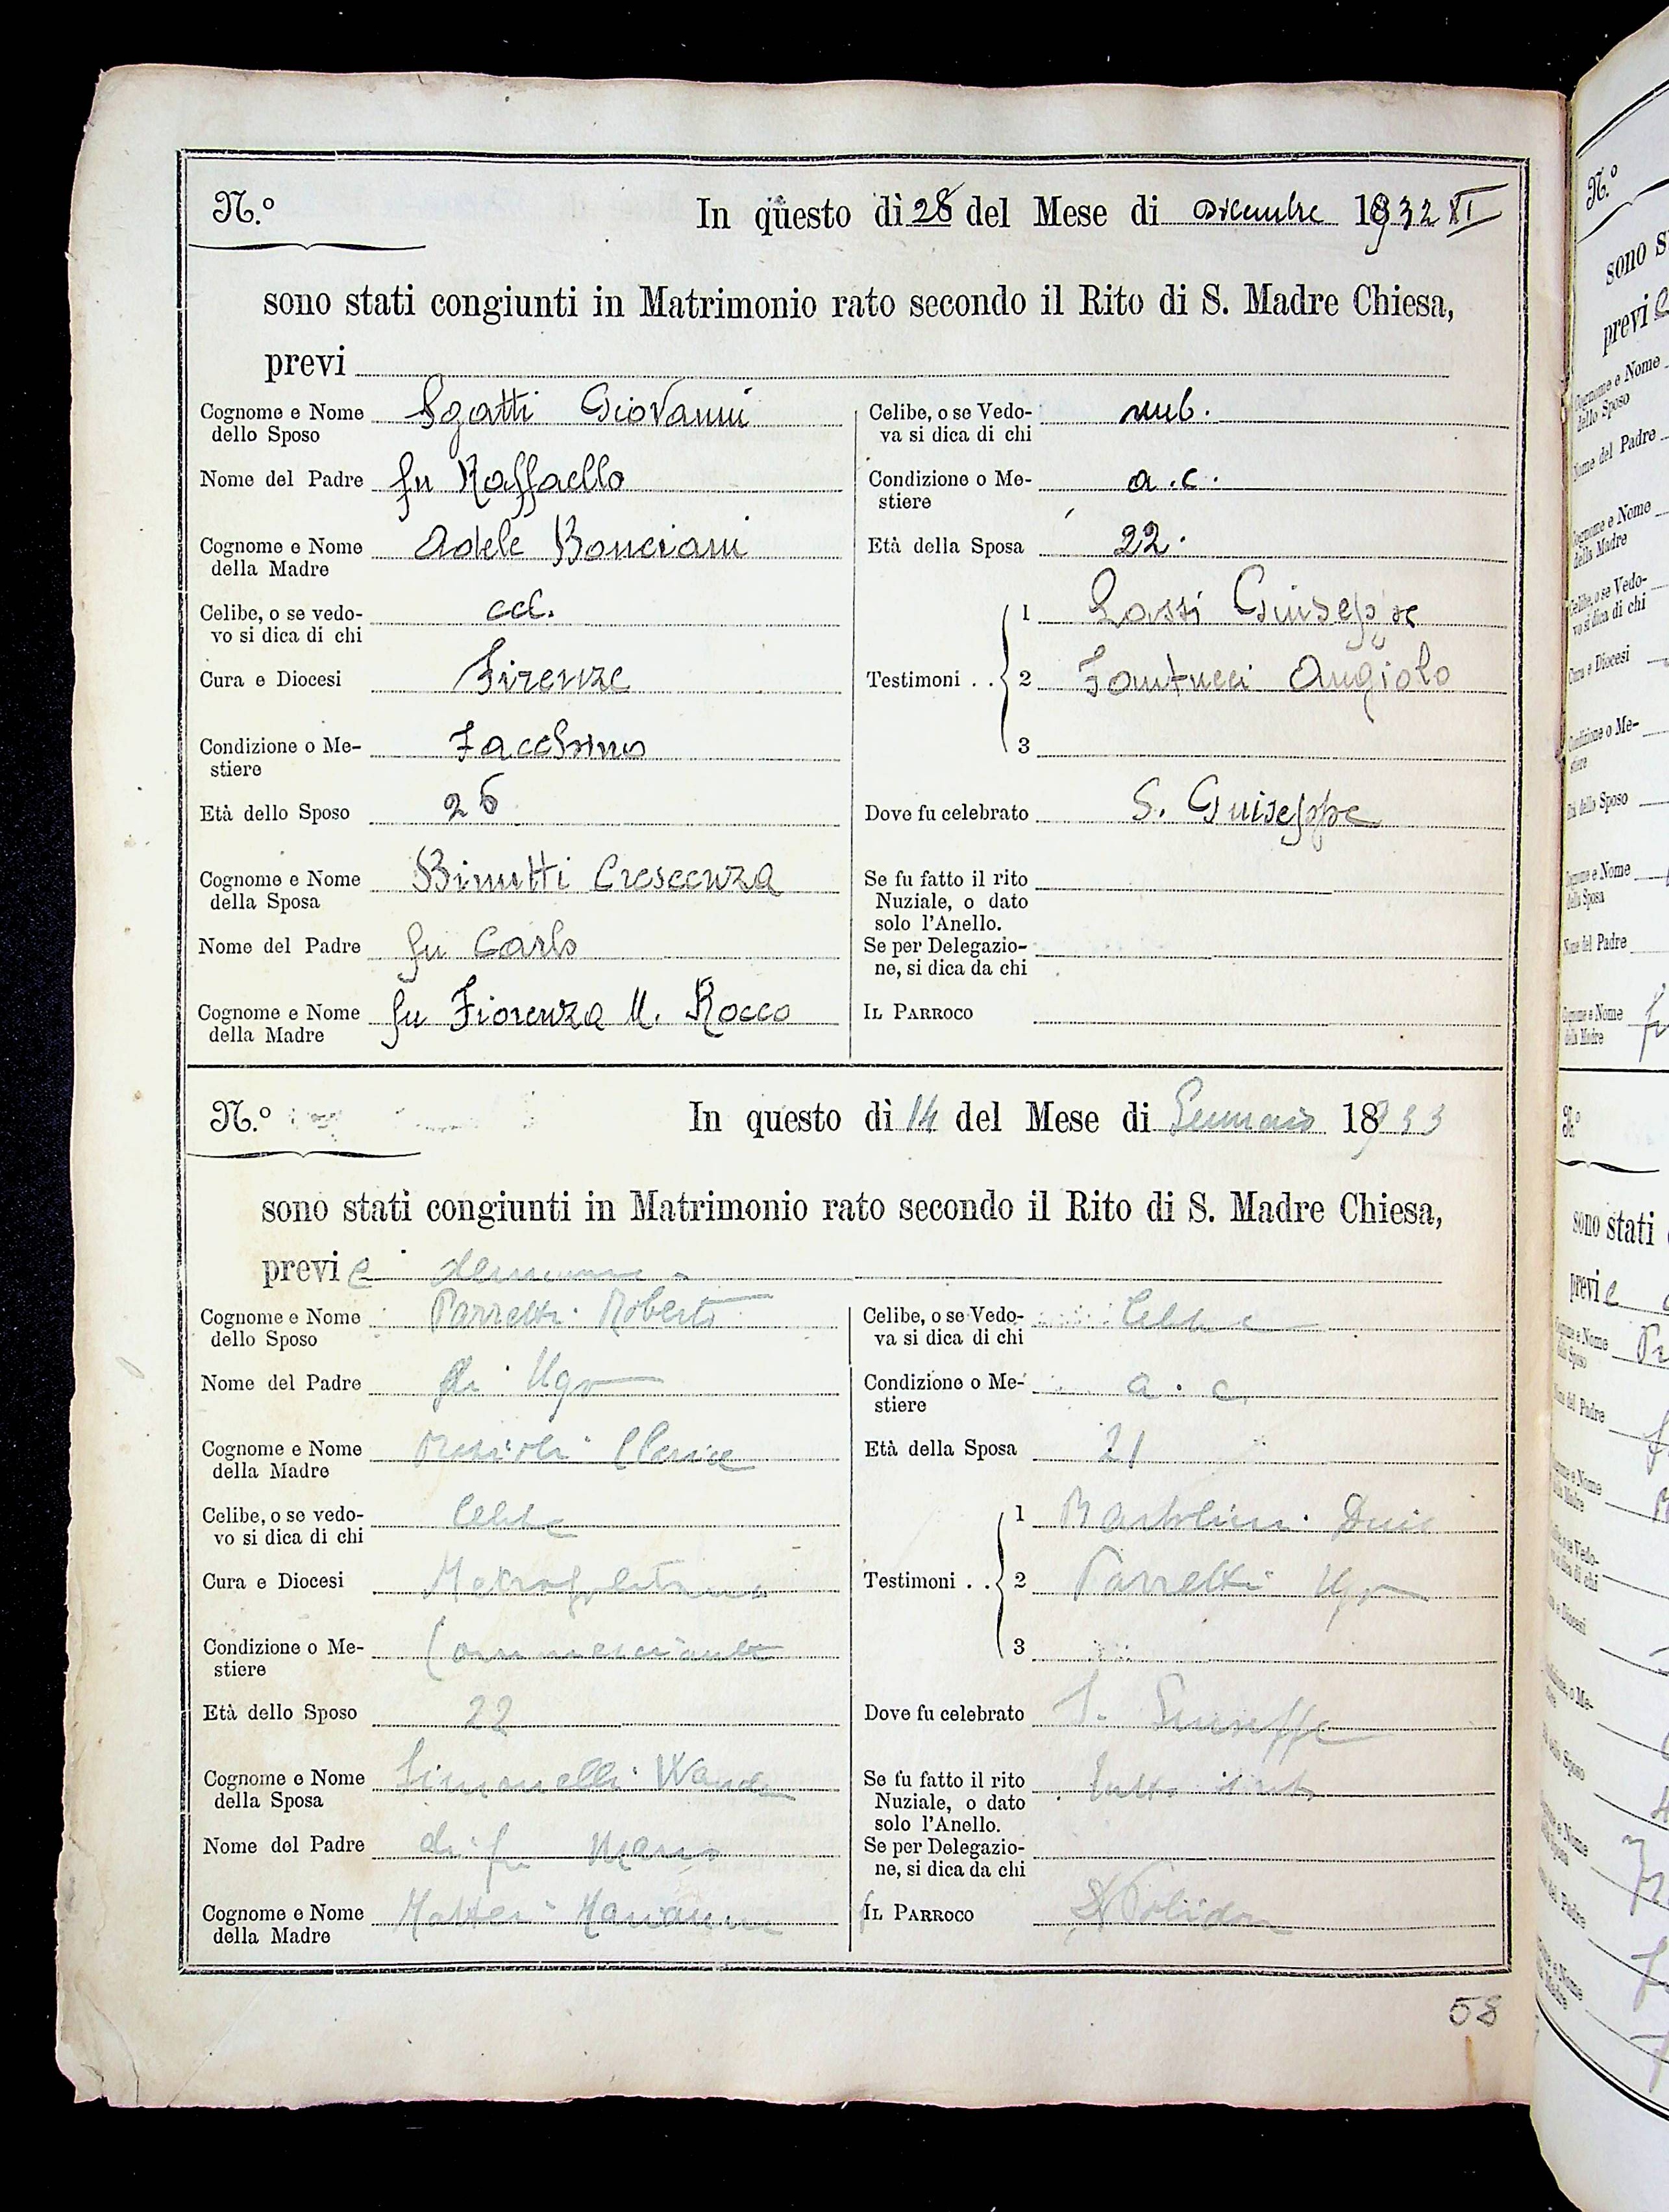 N.º In questo dì 28 del Mese di Dicembre 1932 XI
sono stati congiunti in Matrimonio rato secondo il Rito di S. Madre Chiesa,
previ
Cognome e Nome dello Sposo Sgatti Giovanni
Nome del Padre fu Raffaello
Cognome e Nome della Madre Adele Bonciani
Celibe, o se vedovo si dica di chi cel.
Cura e Diocesi Firenze
Condizione o Mestiere Facchino
Età dello Sposo 26
Cognome e Nome della Sposa Binutti Crescenza
Nome del Padre fu Carlo
Cognome e Nome della Madre fu Fiorenza M. Rocco
Celibe, o se Vedova si dica di chi nub.
Condizione o Mestiere a.c.
Età della Sposa 22.
Testimoni . . 1 Lassi Giuseppe
2 Fantucci Angiolo
3
Dove fu celebrato S. Giuseppe
Se fu fatto il rito Nuziale, o dato solo l'Anello.
Se per Delegazione, si dica da chi
Il Parroco
N.º In questo dì 14 del Mese di Gennaio 1933
sono stati congiunti in Matrimonio rato secondo il Rito di S. Madre Chiesa,
previe
Cognome e Nome dello Sposo Parretti Roberto
Nome del Padre di Ugo
Cognome e Nome della Madre Clarice
Celibe, o se vedovo si dica di chi Celibe
Cura e Diocesi Metropolitana
Condizione o Mestiere Commerciante
Età dello Sposo 22
Cognome e Nome della Sposa Simonelli Wanda
Nome del Padre di fu
Cognome e Nome della Madre Matteri Marianna
Celibe, o se Vedova si dica di chi Celibe
Condizione o Mestiere a. c.
Età della Sposa 21
Testimoni . . 1 Bartolini
2 Parretti Ugo
3
Dove fu celebrato S. Giuseppe
Se fu fatto il rito Nuziale, o dato solo l'Anello.
Se per Delegazione, si dica da chi
Il Parroco
58